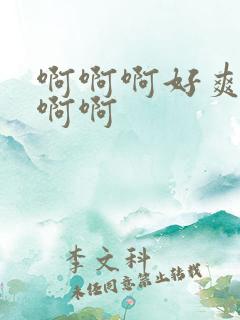 啊啊啊好爽
啊啊
李文科
未经同意禁止转载